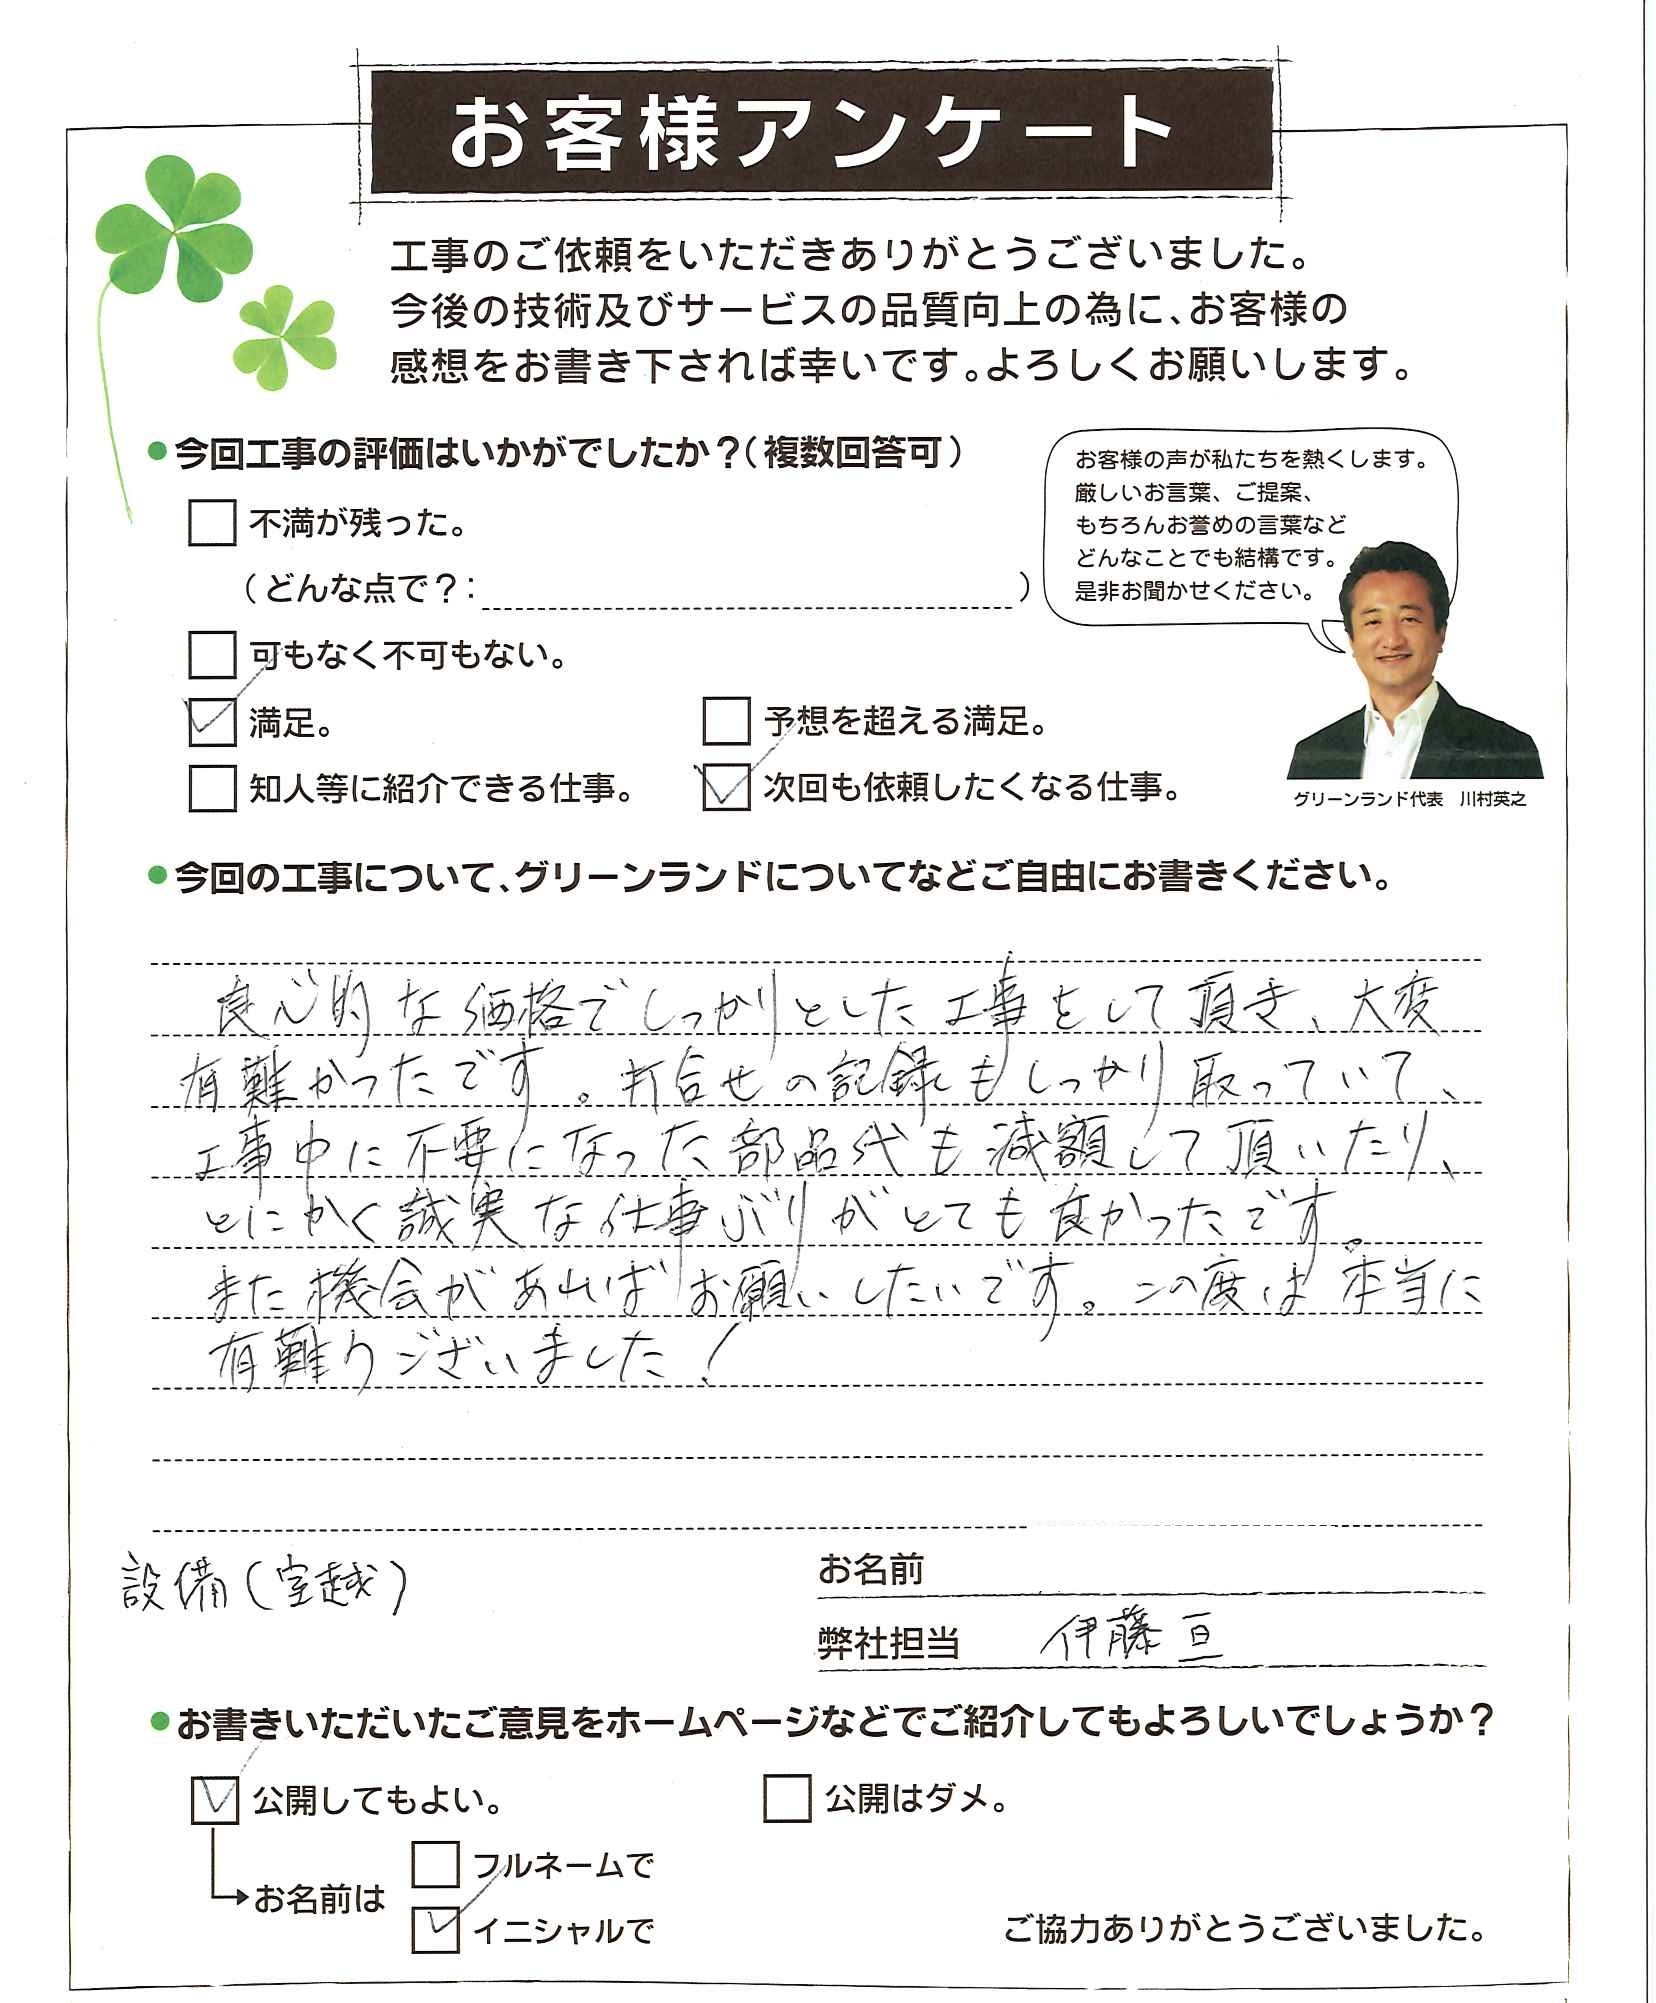 お客様アンケート
工事のご依頼をいただきありがとうございました。
今後の技術及びサービスの品質向上の為に、お客様の
感想をお書き下されば幸いです。よろしくお願いします。
●今回工事の評価はいかがでしたか?(複数回答可)
お客様の声が私たちを熱くします。
厳しいお言葉、ご提案、
もちろんお誉めの言葉など
どんなことでも結構です。
是非お聞かせください。
グリーンランド代表 川村英之
□ 不満が残った。
(どんな点で?: )
□ 可もなく不可もない。
☑ 満足。 □ 予想を超える満足。
□ 知人等に紹介できる仕事。 ☑ 次回も依頼したくなる仕事。
●今回の工事について、グリーンランドについてなどご自由にお書きください。
良心的な価格でしっかりとした工事をして頂き、大変
有難かったです。打合せの記録もしっかり取っていて、
工事中に不要になった部品代も減額して頂いたり、
とにかく誠実な仕事ぶりがとても良かったです。
また機会があればお願いしたいです。この度は本当に
有難うございました!
設備(室越)
お名前
弊社担当 伊藤亘
●お書きいただいたご意見をホームページなどでご紹介してもよろしいでしょうか?
☑ 公開してもよい。 □ 公開はダメ。
お名前は
□ フルネームで
☑ イニシャルで
ご協力ありがとうございました。